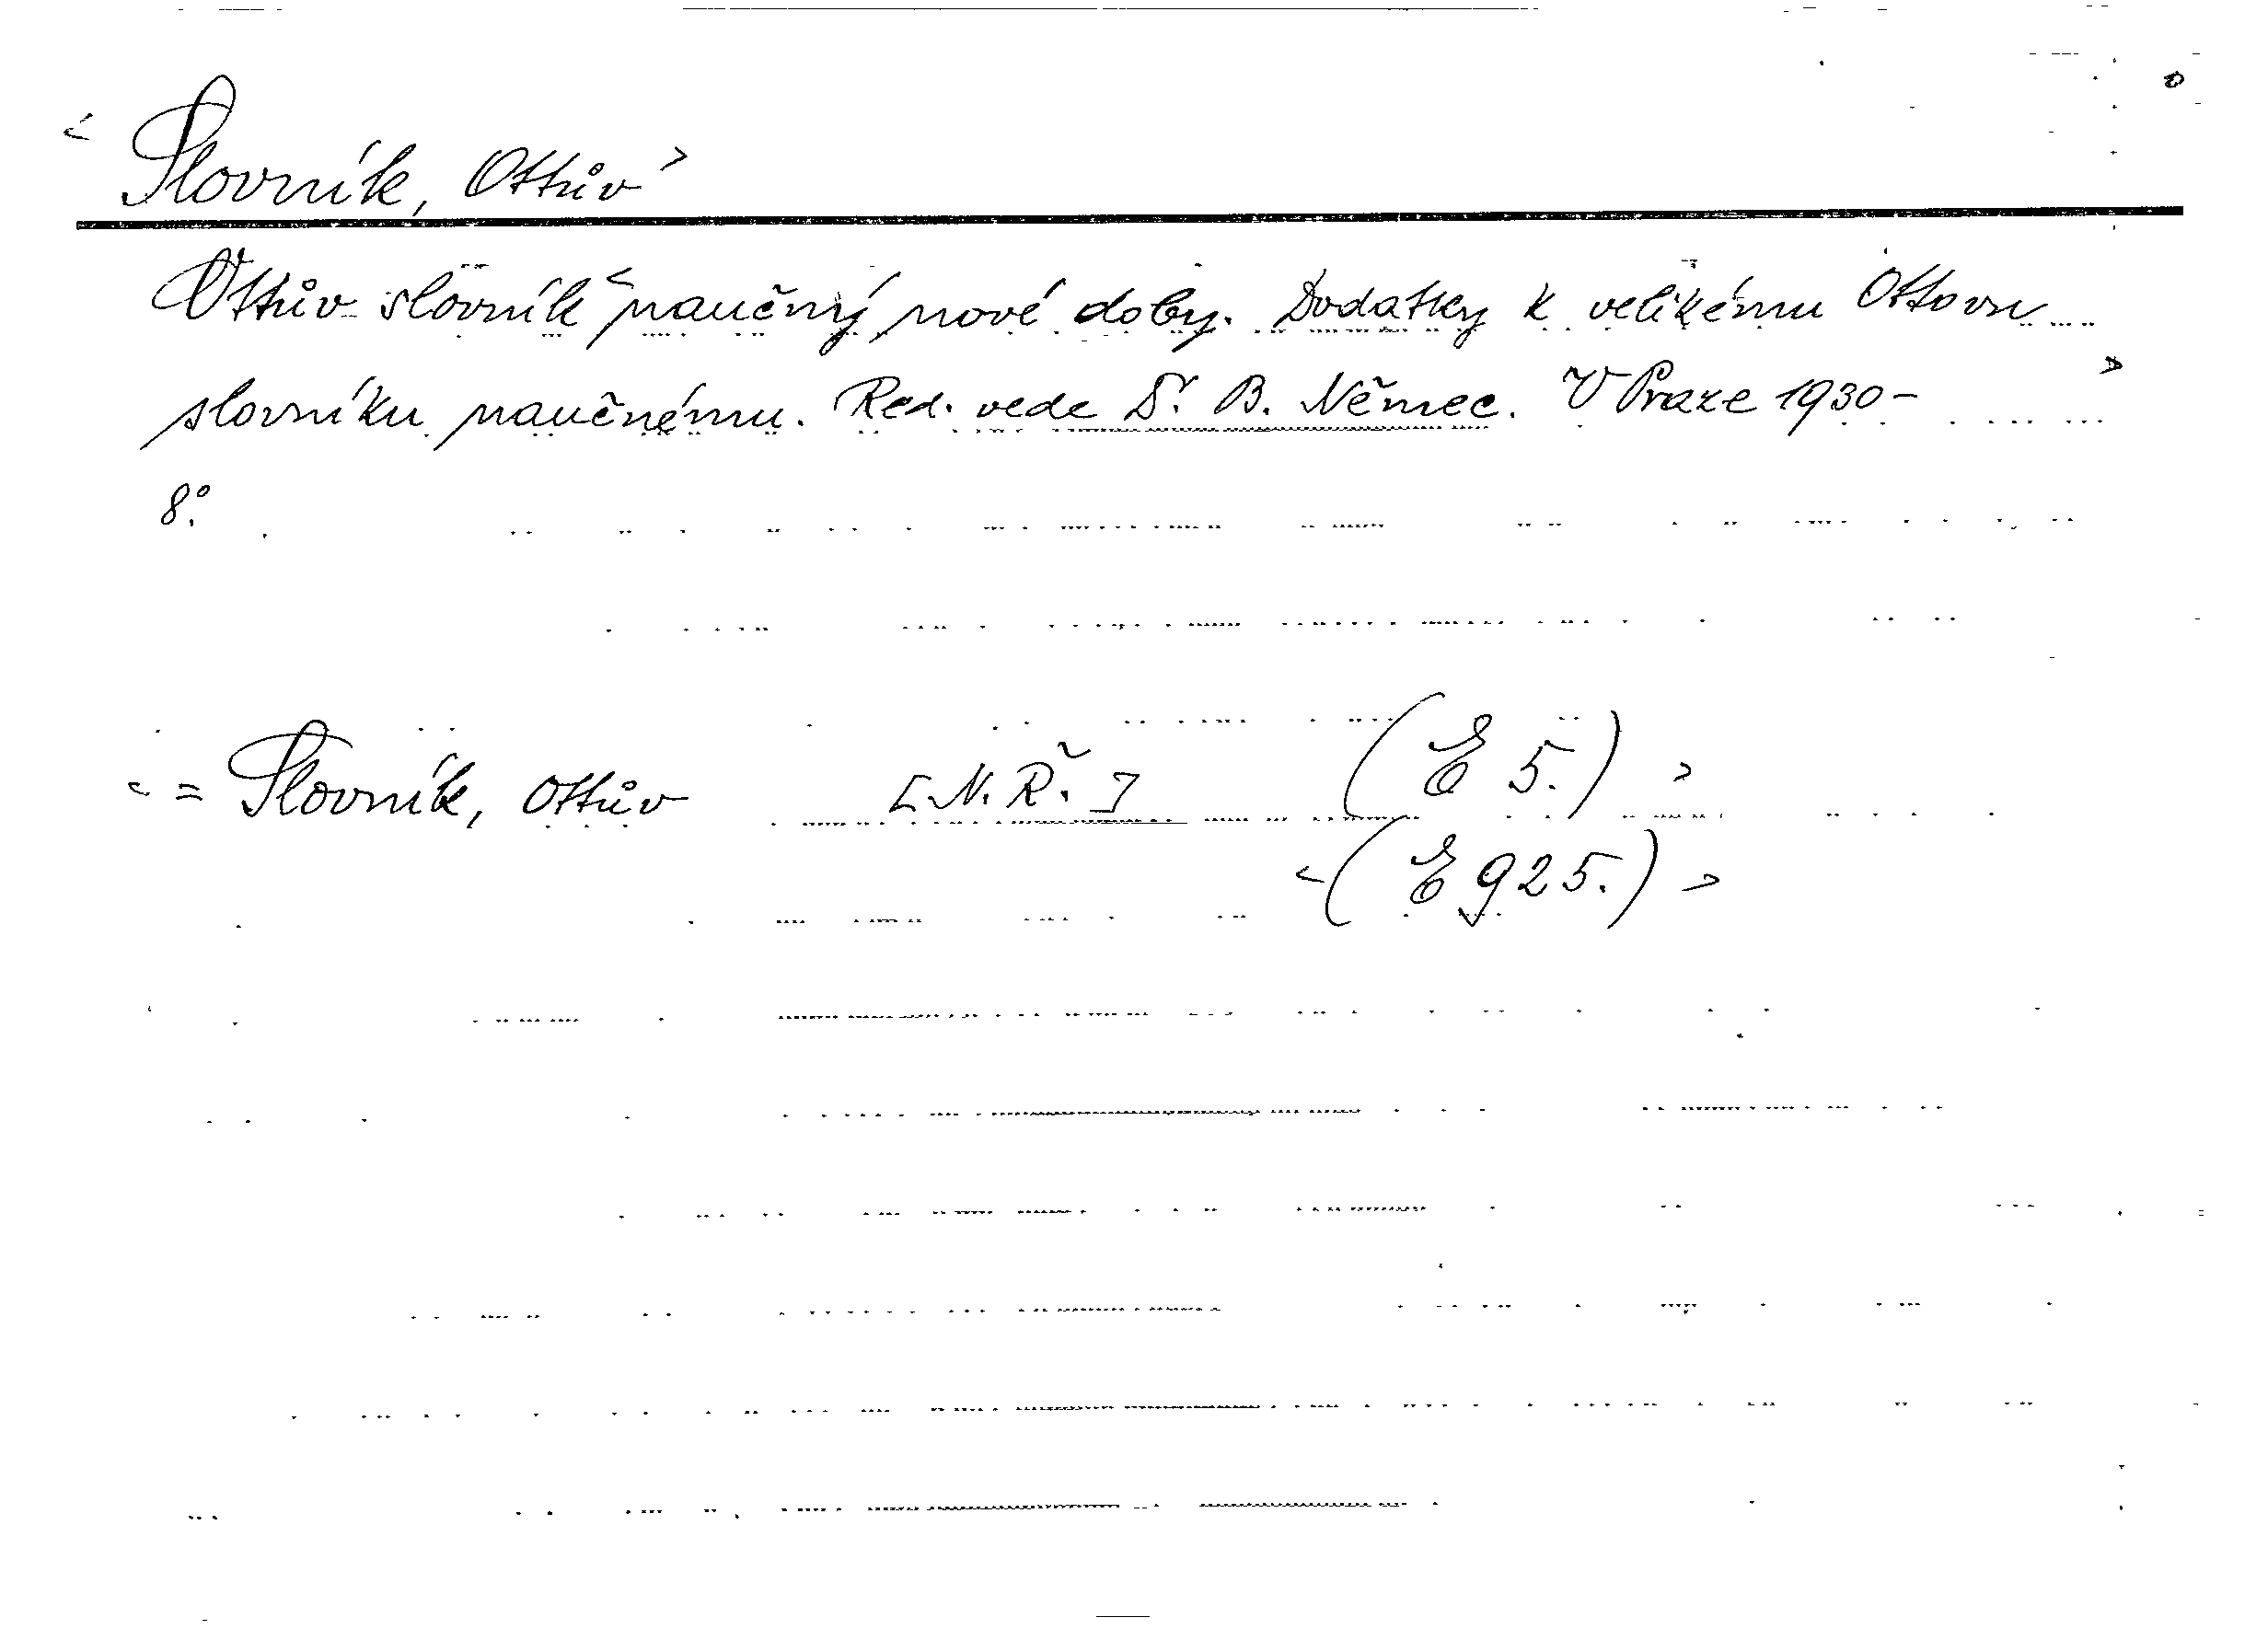 < Slovník, Ottův >
Ottův slovník < naučný nové doby. Dodatky k velikému Ottovu
slovníku naučnému. Red. vede Dr. B. Němec. V Praze 1930- >
8°.
< = Slovník, Ottův [N. Ř.] (E 5.) >
< (E 925.) >